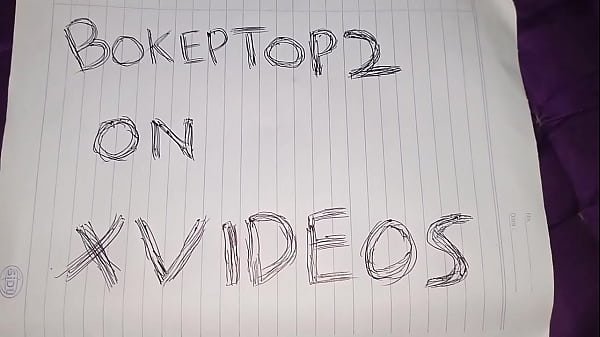 BOKEPTOP2
ON
XVIDEOS
SiDU